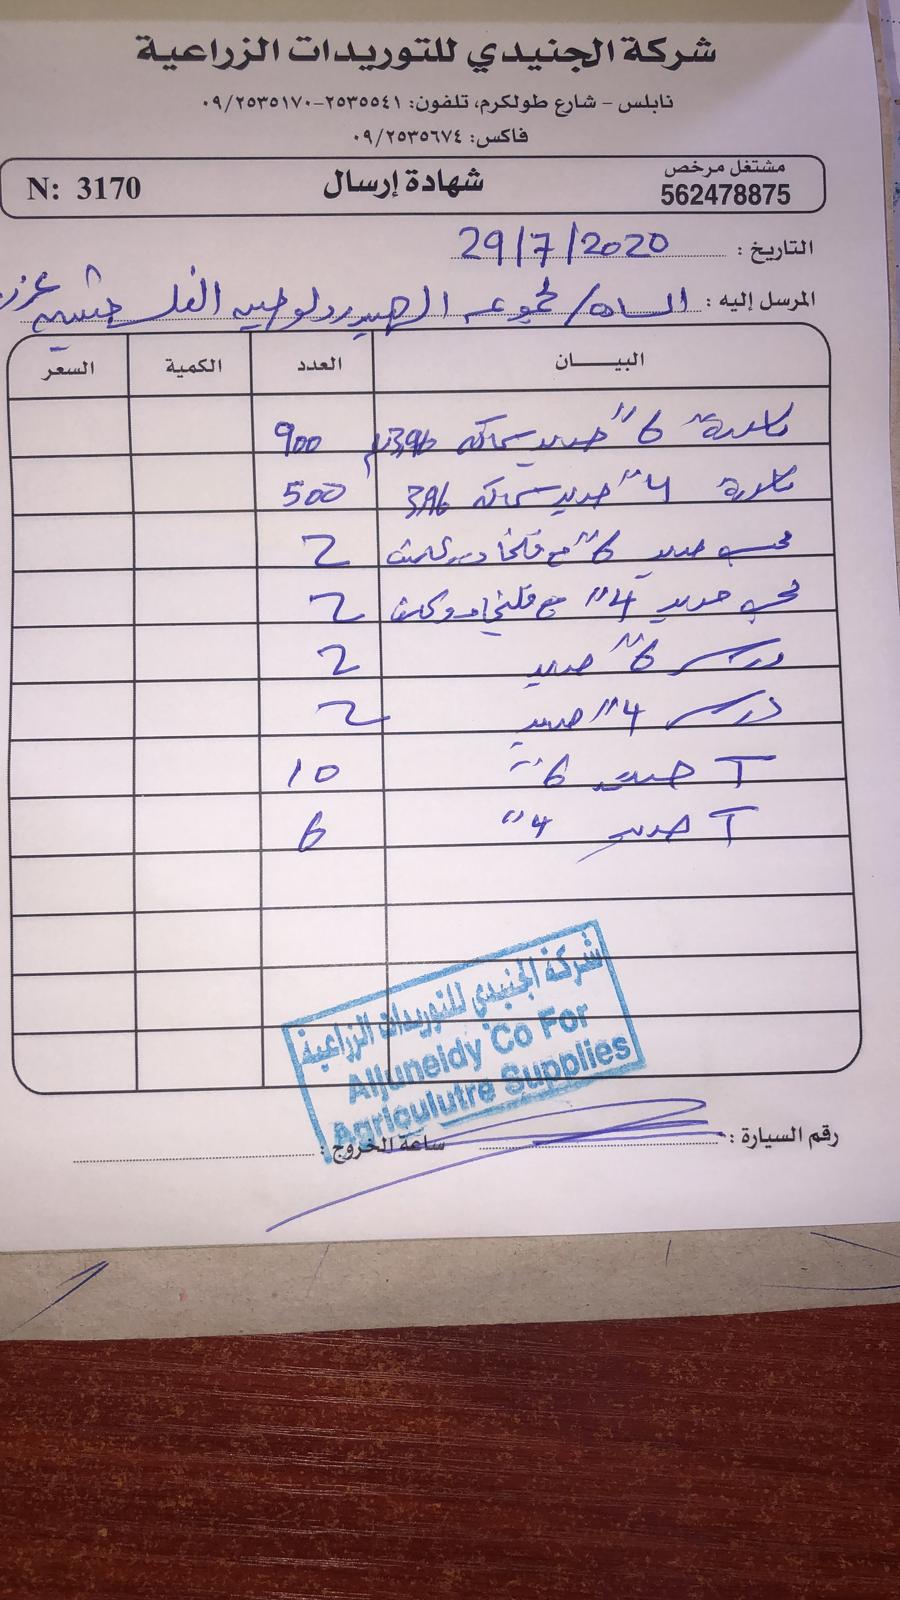 شركة الجنيدي للتوريدات الزراعية
نابلس - شارع طولكرم، تلفون: ٢٥٣٥٥٤١-٠٩/٢٥٣٥١٧٠
فاكس: ٠٩/٢٥٣٥٦٧٤
مشتغل مرخص
562478875
شهادة إرسال
N: 3170
التاريخ : 29/7/2020
المرسل إليه : الساده/ مجموعه الهيدرولوجيين الفلسطينيين
البيـــان العدد الكمية السعر
ماسورة 6" حديد سماكه 3,96 900
ماسورة 4" حديد سماكه 3,96 500
محبس حديد 6" مع فلنجات 2
محبس حديد 4" مع فلنجات 2
6" حديد 2
4" حديد 2
T حديد 6" 10
T حديد 4" 6
شركة الجنيدي للتوريدات الزراعية
Aljuneidy Co For
Agriculutre Supplies
رقم السيارة : ساعة الخروج :